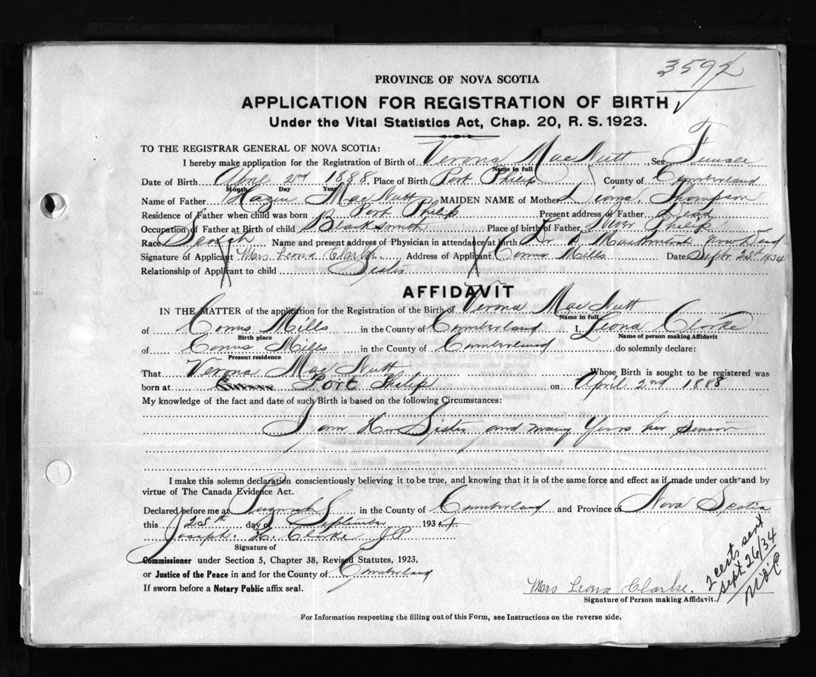 3592
PROVINCE OF NOVA SCOTIA
APPLICATION FOR REGISTRATION OF BIRTH
Under the Vital Statistics Act, Chap. 20, R. S. 1923.
TO THE REGISTRAR GENERAL OF NOVA SCOTIA:
I hereby make application for the Registration of Birth of Verona MacNutt Sex Female
Name in full
Date of Birth April 2nd 1888, Place of Birth Port Philip County of Cumberland
Month Day Year
Name of Father MacNutt MAIDEN NAME of Mother Thompson
Residence of Father when child was born Port Philip Present address of Father Dead
Occupation of Father at Birth of child Blacksmith Place of birth of Father, River Philip
Race Scotch Name and present address of Physician in attendance at Birth Dr
Signature of Applicant Mrs Leona Clarke Address of Applicant Conns Mills Date Sept 25th 1934
Relationship of Applicant to child Sister
AFFIDAVIT
IN THE MATTER of the application for the Registration of the Birth of Verona MacNutt
Name in full
of Conns Mills in the County of Cumberland I, Leona Clarke
Birth place Name of person making Affidavit
of Conns Mills in the County of Cumberland do solemnly declare:
Present residence
That Verona MacNutt Whose Birth is sought to be registered was
born at Port Philip on April 2nd 1888
My knowledge of the fact and date of such Birth is based on the following Circumstances:
I am Her Sister and many Years her Senior
I make this solemn declaration conscientiously believing it to be true, and knowing that it is of the same force and effect as if made under oath and by
virtue of The Canada Evidence Act.
Declared before me at Pugwash in the County of Cumberland and Province of Nova Scotia
this 25th day of September 1934
Joseph Clarke JP
Signature of
Commissioner under Section 5, Chapter 38, Revised Statutes, 1923,
or Justice of the Peace in and for the County of Cumberland
If sworn before a Notary Public affix seal.
Mrs Leona Clarke.
Signature of Person making Affidavit.
2 certs sent
Sept 26/34
For Information respecting the filling out of this Form, see Instructions on the reverse side.